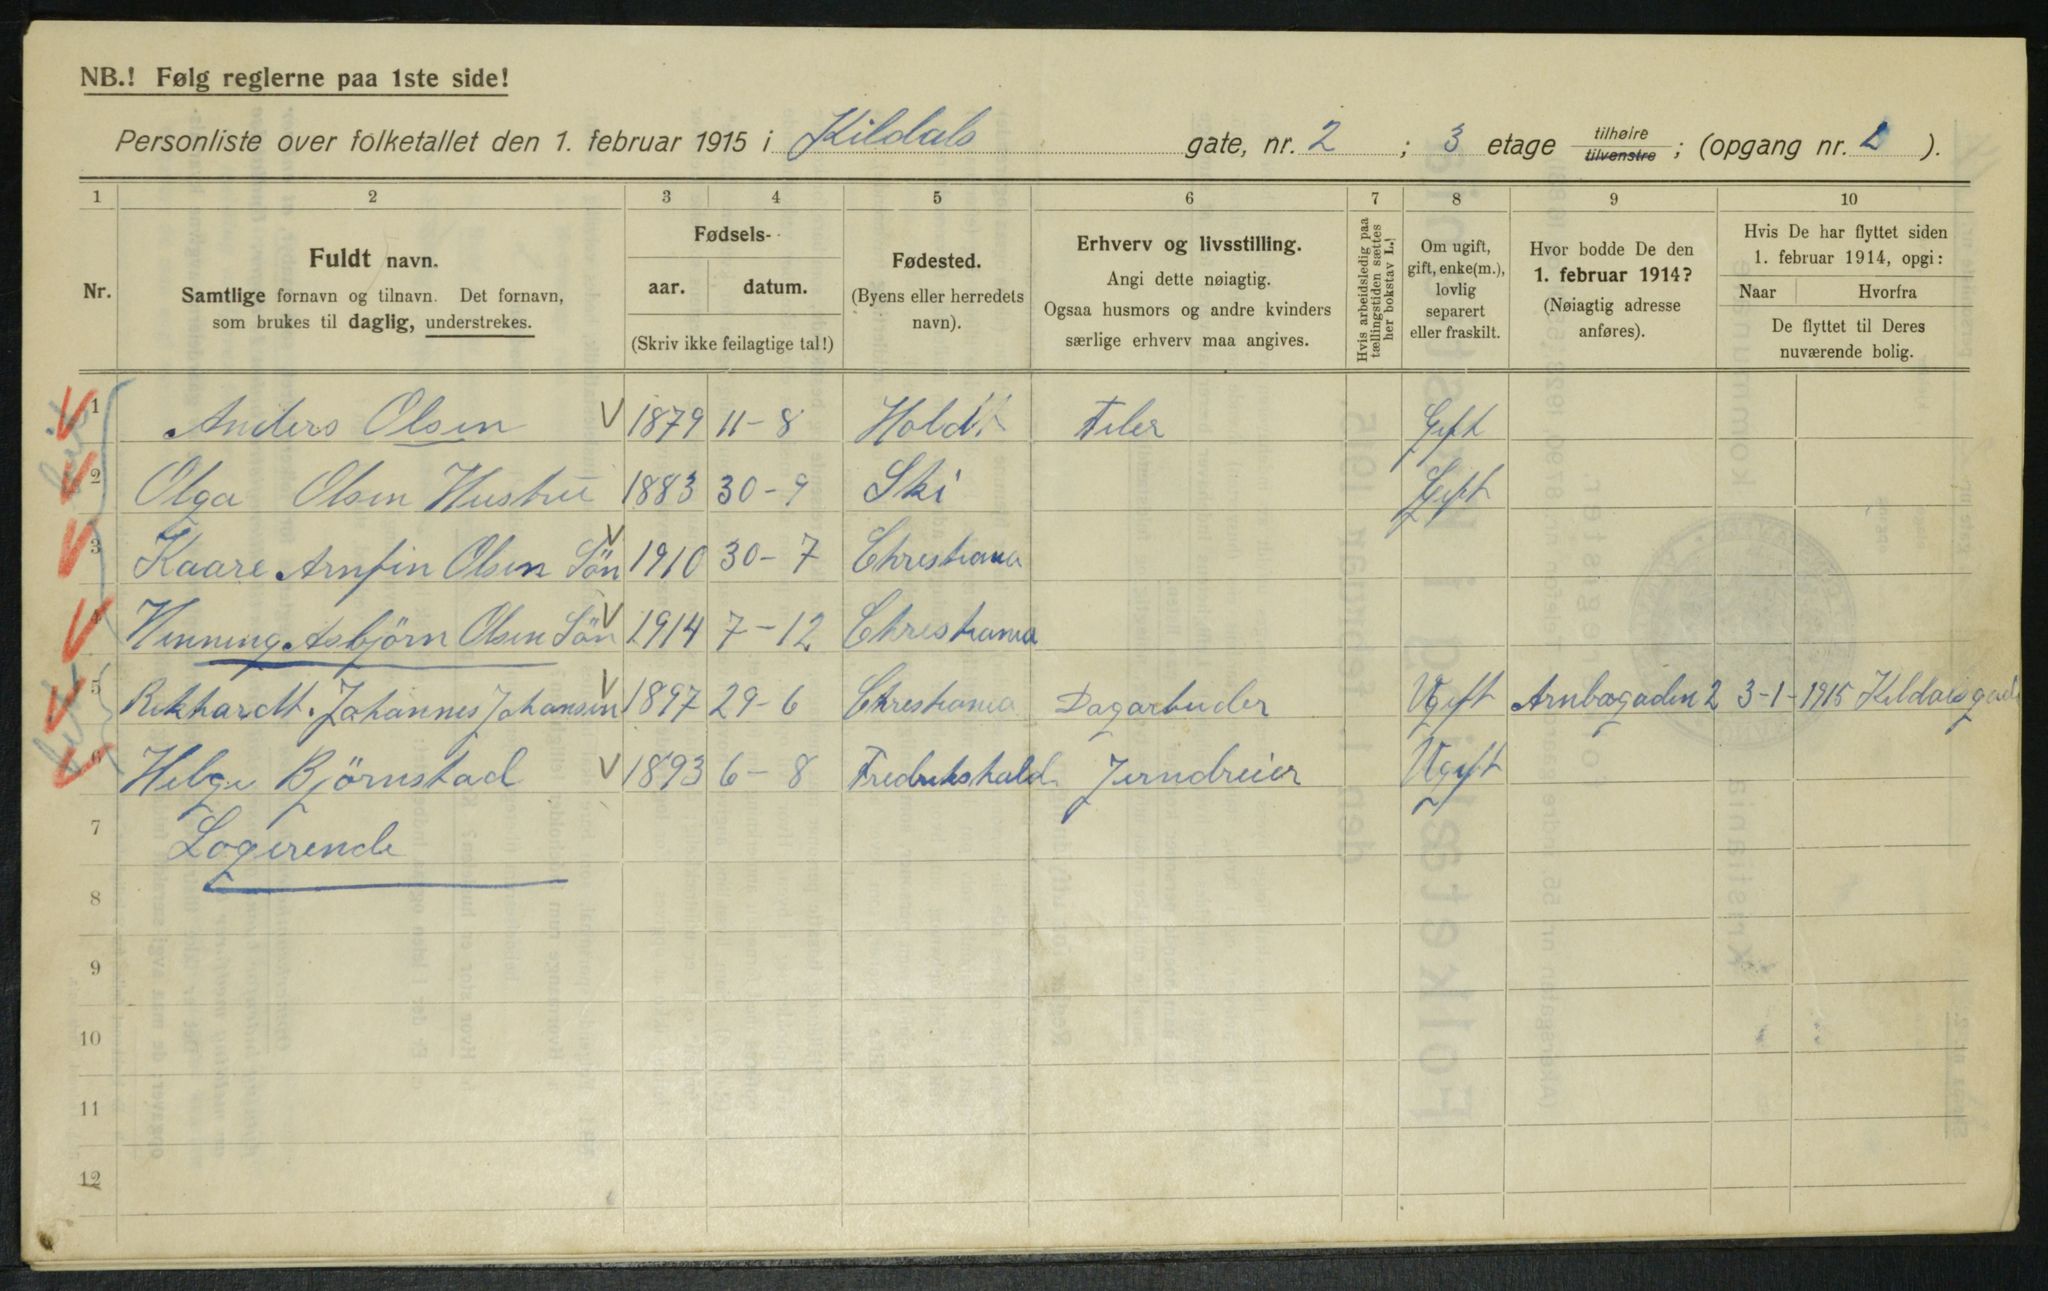 NB.! Følg reglerne paa 1ste side!
Personliste over folketallet den 1. februar 1915 i Kildals gate, nr. 2 ; 3 etage tilhøire tilvenstre ; (opgang nr. 2 ).
1 2 3 4 5 6 7 8 9 10
Nr.
Fuldt navn.
Samtlige fornavn og tilnavn. Det fornavn,
som brukes til daglig, understrekes.
Fødsels-
aar. datum.
(Skriv ikke feilagtige tal!)
Fødested.
(Byens eller herredets
navn).
Erhverv og livsstilling.
Angi dette nøiagtig.
Ogsaa husmors og andre kvinders
særlige erhverv maa angives.
Hvis arbeidsledig paa
tællingstiden sættes
her bokstav L.!
Om ugift,
gift, enke(m.),
lovlig
separert
eller fraskilt.
Hvor bodde De den
1. februar 1914?
(Nøiagtig adresse
anføres).
Hvis De har flyttet siden
1. februar 1914, opgi:
Naar Hvorfra
De flyttet til Deres
nuværende bolig.
1 Anders Olsen 1879 11-8 Holdt Filer Gift
2 Olga Olsen Hustru 1883 30-9 Ski Gift
3 Kaare Arnfin Olsen Sön 1910 30-7 Christiania
4 Henning Asbjörn Olsen Sön 1914 7-12 Christiania
5 Rikhardt. Johannes Johansen 1897 29-6 Christiania Dagarbuder Ugift 2 3-1-1915 Kildalsgade
6 Helge Björnstad 1893 6-8 Fredrikshald Jerndreier Ugift
7 Logerende
8
9
10
11
12